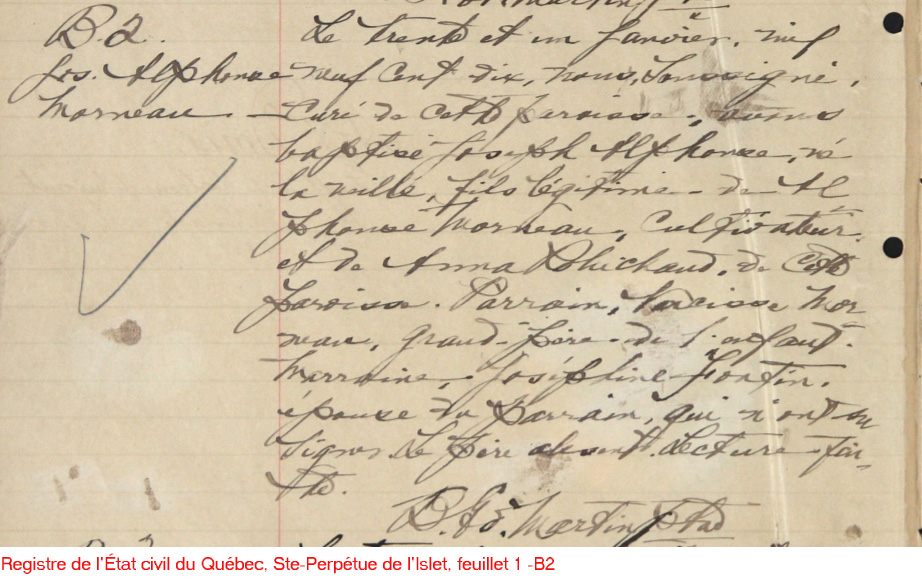 B 2.
Jos. Alphonse
Morneau
Le trente et un janvier, mil
neuf cent dix, nous, soussigné,
curé de cette paroisse, avons
baptisé Joseph Alphonse, né
la veille, fils légitime de Al
phonse Morneau, cultivateur
et de Anna Robichaud, de cette
paroisse. Parrain, Narcisse Mor
neau, grand-père de l'enfant.
Marraine, Joséphine Fortin,
épouse du parrain, qui n'ont su
signer. Le père absent. Lecture fai-
te.
Martin Ptre
Registre de l'État civil du Québec, Ste-Perpétue de l'Islet, feuillet 1 -B2